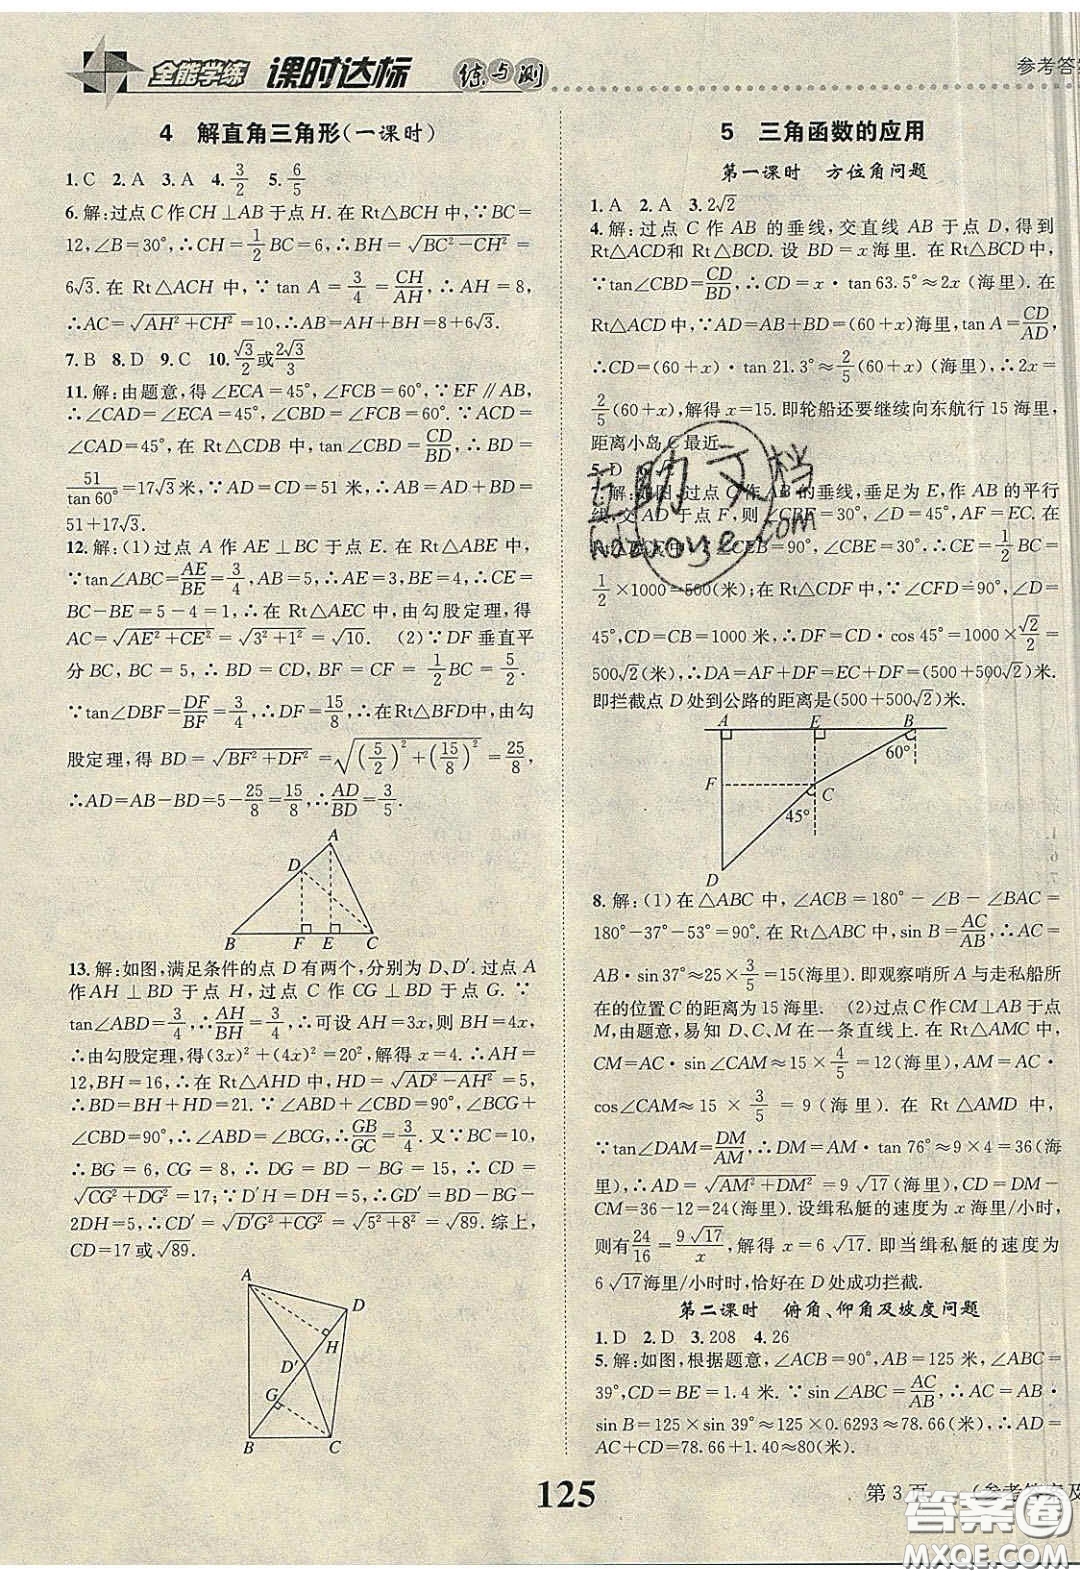 全能学练 课时达标 练与测
参考答
4 解直角三角形(一课时)
1.C 2.A 3.A 4.3/2 5.6/5
6.解:过点C作CH⊥AB于点H.在Rt△BCH中,∵BC=
12,∠B=30°,∴CH=1/2BC=6,∴BH=√(BC²-CH²)=
6√3.在Rt△ACH中,∵tan A=3/4=CH/AH,∴AH=8,
∴AC=√(AH²+CH²)=10,∴AB=AH+BH=8+6√3.
7.B 8.D 9.C 10.√3/2或2√3/3
11.解:由题意,得∠ECA=45°,∠FCB=60°,∵EF∥AB,
∴∠CAD=∠ECA=45°,∠CBD=∠FCB=60°.∵∠ACD=
∠CAD=45°.在Rt△CDB中,tan∠CBD=CD/BD,∴BD=
51/tan60°=17√3米,∵AD=CD=51米,∴AB=AD+BD=
51+17√3.
12.解:(1)过点A作AE⊥BC于点E.在Rt△ABE中,
∵tan∠ABC=AE/BE=3/4,AB=5,∴AE=3,BE=4,∴CE=
BC-BE=5-4=1,在Rt△AEC中,由勾股定理,得
AC=√(AE²+CE²)=√(3²+1²)=√10. (2)∵DF垂直平
分BC,BC=5,∴BD=CD,BF=CF=1/2BC=5/2.
∵tan∠DBF=DF/BF=3/4,∴DF=15/8,∴在Rt△BFD中,由勾
股定理,得BD=√(BF²+DF²)=√((5/2)²+(15/8)²)=25/8,
∴AD=AB-BD=5-25/8=15/8,∴AD/BD=3/5.
A
D
B F E C
13.解:如图,满足条件的点D有两个,分别为D、D′.过点A
作AH⊥BD于点H,过点C作CG⊥BD于点G.∵
tan∠ABD=3/4,∴AH/BH=3/4,∴可设AH=3x,则BH=4x,
∴由勾股定理,得(3x)²+(4x)²=20²,解得x=4.∴AH=
12,BH=16,∴在Rt△AHD中,HD=√(AD²-AH²)=5,
∴BD=BH+HD=21.∵∠ABD+∠CBD=90°,∠BCG+
∠CBD=90°,∴∠ABD=∠BCG,∴GB/GC=3/4.又∵BC=10,
∴BG=6,CG=8,∴DG=BD-BG=15,∴CD=
√(CG²+DG²)=17;∵D′H=DH=5,∴GD′=BD-BG-
2DH=5,∴CD′=√(D′G²+CG²)=√(5²+8²)=√89.综上,
CD=17或√89.
A
D
H
D′
G
B C
5 三角函数的应用
第一课时 方位角问题
1.A 2.A 3.2√2
4.解:过点C作AB的垂线,交直线AB于点D,得到
Rt△ACD和Rt△BCD.设BD=x海里.在Rt△BCD中,
∵tan∠CBD=CD/BD,∴CD=x·tan63.5°≈2x(海里).在
Rt△ACD中,∵AD=AB+BD=(60+x)海里,tan A=CD/AD,
∴CD=(60+x)·tan21.3°≈2/5(60+x)(海里),∴2x=
2/5(60+x),解得x=15.即轮船还要继续向东航行15海里,
距离小岛C最近.
5.D
7.解:如图,过点C作AB的垂线,垂足为E,作AB的平行
线,交AD于点F,则∠CBF=30°,∠D=45°,AF=EC.在
∠CEB=90°,∠CBE=30°,∴CE=1/2BC=
1/2×1000=500(米);在Rt△CFD中,∠CFD=90°,∠D=
45°,CD=CB=1000米,∴DF=CD·cos45°=1000×√2/2=
500√2(米),∴DA=AF+DF=EC+DF=(500+500√2)米.
即拦截点D处到公路的距离是(500+500√2)米.
A E B
60°
F
C
45°
D
8.解:(1)在△ABC中,∠ACB=180°-∠B-∠BAC=
180°-37°-53°=90°.在Rt△ABC中,sin B=AC/AB,∴AC=
AB·sin37°≈25×3/5=15(海里).即观察哨所A与走私船所
在的位置C的距离为15海里. (2)过点C作CM⊥AB于点
M,由题意,易知D、C、M在一条直线上.在Rt△AMC中,
CM=AC·sin∠CAM≈15×4/5=12(海里),AM=AC·
cos∠CAM≈15×3/5=9(海里).在Rt△AMD中,
∵tan∠DAM=DM/AM,∴DM=AM·tan76°≈9×4=36(海
里),∴AD=√(AM²+DM²)=9√17(海里),CD=DM-
CM=36-12=24(海里).设缉私艇的速度为x海里/小时,
则有24/16=9√17/x,解得x=6√17.即当缉私艇的速度为
6√17海里/小时时,恰好在D处成功拦截.
第二课时 俯角、仰角及坡度问题
1.D 2.D 3.208 4.26
5.解:如图,根据题意,∠ACB=90°,AB=125米,∠ABC=
39°,CD=BE=1.4米.∵sin∠ABC=AC/AB,∴AC=AB·
sin B=125×sin39°≈125×0.6293≈78.66(米),∴AD=
AC+CD=78.66+1.40≈80(米).
125
第3页
(参考答案及
互助文档
hdzuoye.com
答案圈
MXQE.COM